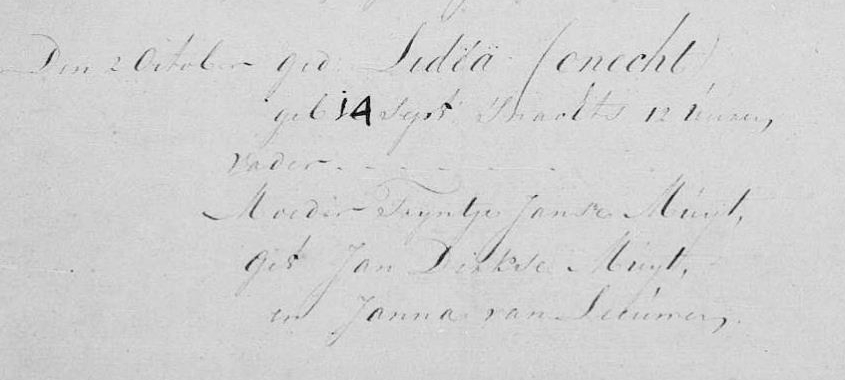 Den 2 October ged. Lidëa (onecht)
geb 14 Sept s'nachts 12 üüren,
Vader - - - - -
Moeder Tryntje Janse Müyt,
get Jan Dirkse Müyt,
en Janna van Leüümen,